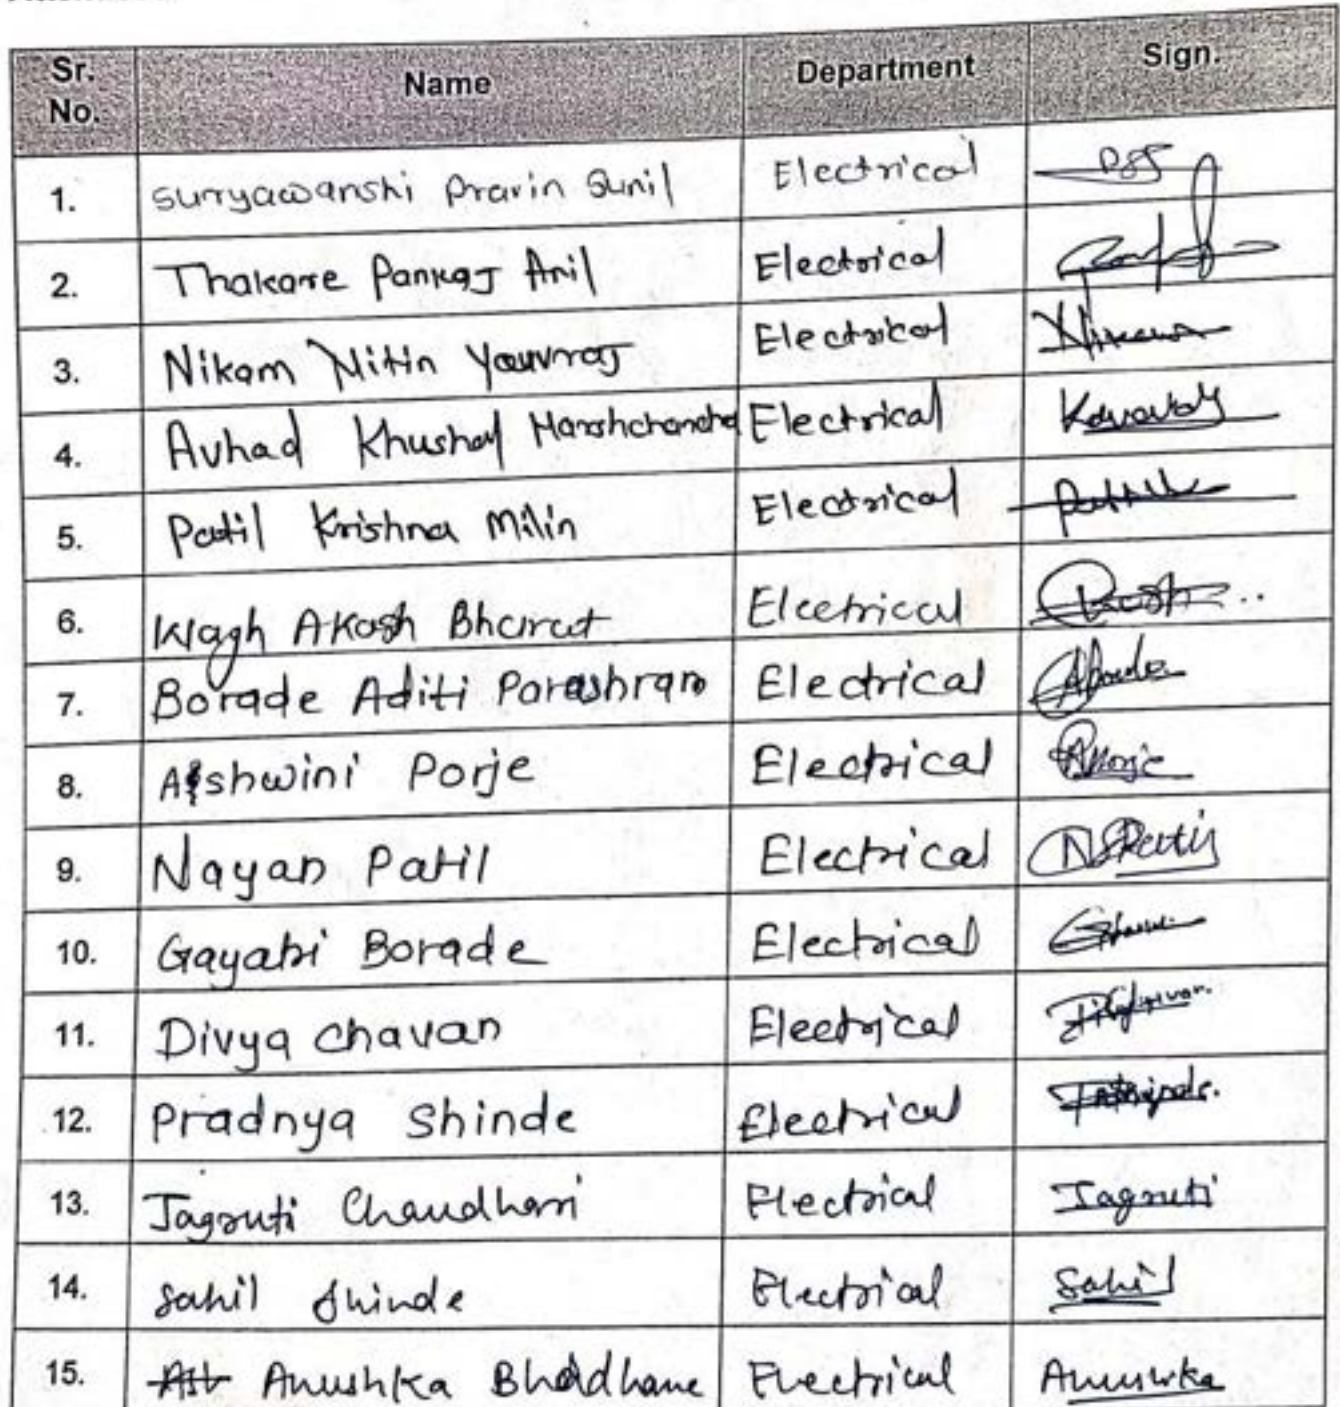 Sr. No. Name Department Sign.
1. Suryawanshi Pravin Sunil Electrical PSS
2. Thakare Pankaj Anil Electrical
3. Nikam Nitin Yauvraj Electrical Nikam
4. Avhad Khushal Harshchandra Electrical
5. Patil Krishna Milin Electrical Patil
6. Wagh Akash Bharat Electrical
7. Borade Aditi Parashram Electrical ABorade
8. Ashwini Porje Electrical APorje
9. Nayan Patil Electrical NSPatil
10. Gayatri Borade Electrical
11. Divya chavan Electrical
12. Pradnya Shinde Electrical
13. Jagruti Chaudhari Electrical Jagruti
14. Sahil Shinde Electrical Sahil
15. Anushka Bhadhane Electrical Anushka